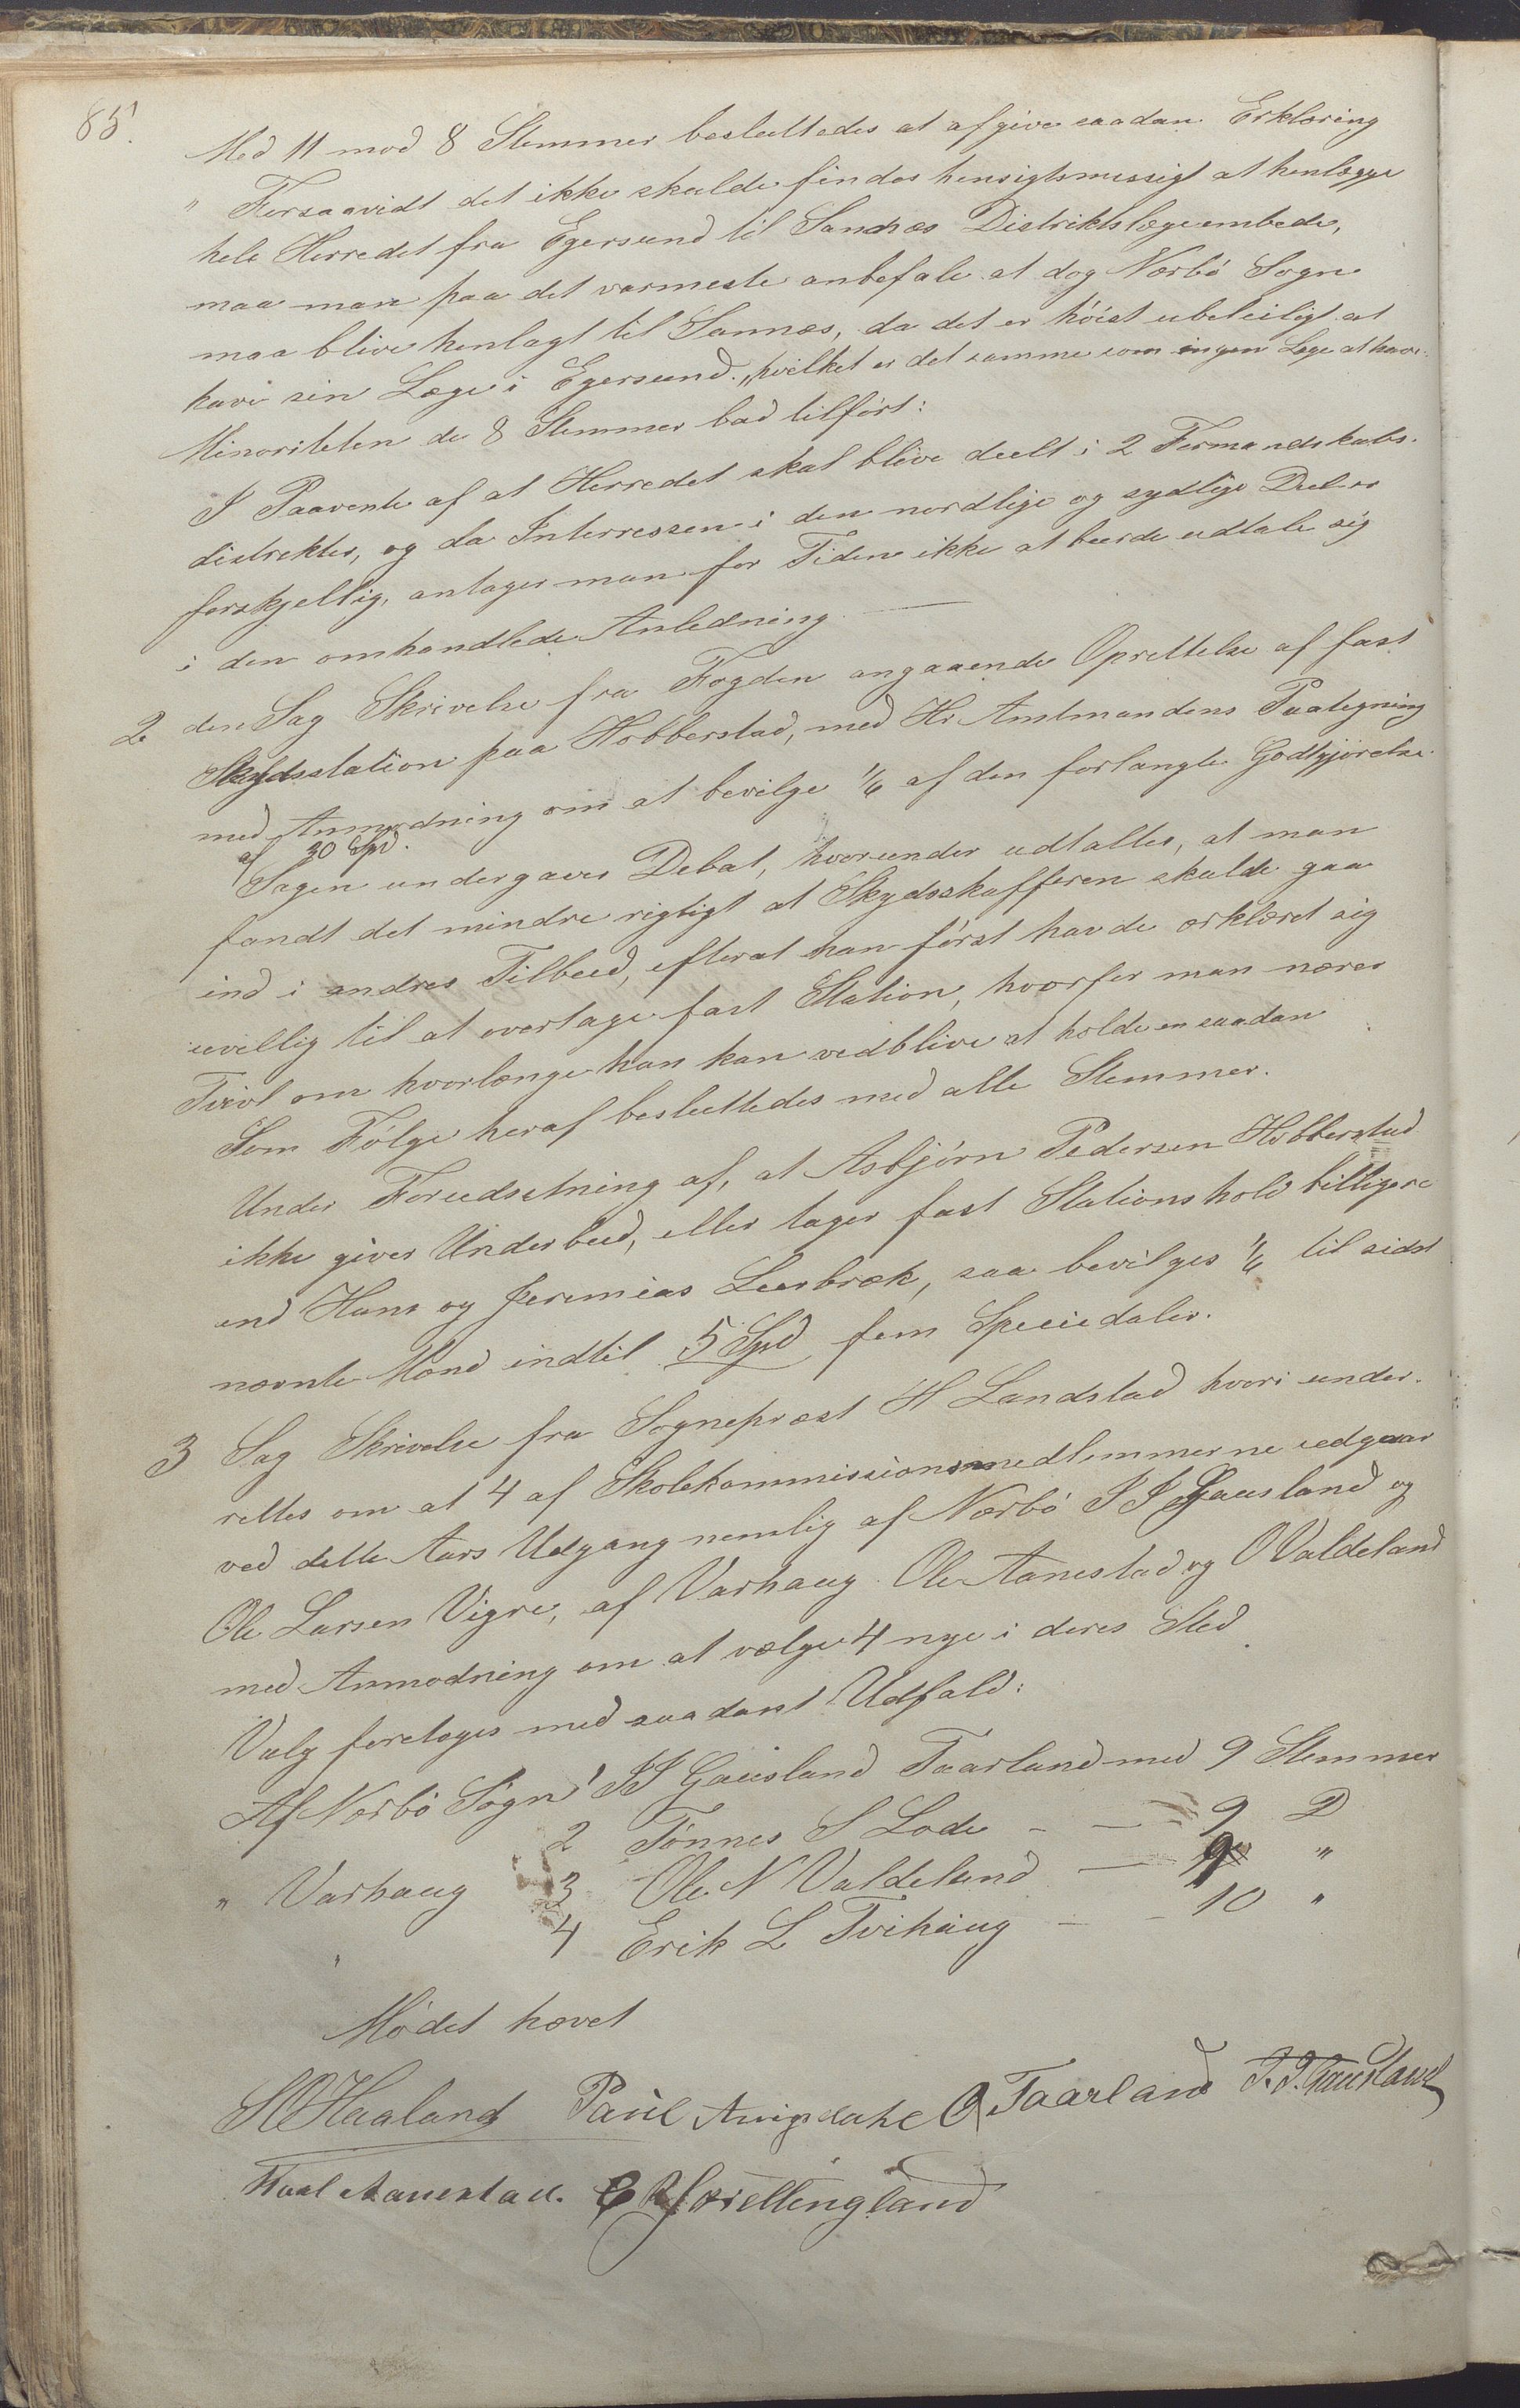 85.
Med 11 mod 8 Stemmer besluttedes at afgive saadan Erklæring
" Forsaavidt det ikke skulde findes hensigtsmessigt at henlægge
hele Herredet fra Egersund til Sandnæs Distriktslægeembede,
maa man paa det varmeste anbefale at dog Nærbö Sogn
maa blive henlagt til Sannæs, da det er höist ubeleiligt at
have sin Læge i Egersund. „hvilket er det samme som ingen Læge at have.
Minoriteten de 8 Stemmer bad tilfört:
I Paavente af at Herredet skal blive deelt i 2 Formandskabs-
distrikter, og da Interressen i den nordlige og sydlige Deel er
forskjellig, antager man for Tiden ikke at burde udtale sig
i den omhandlede Anledning.
2 den Sag Skrivelse fra Fogden angaaende Oprettelse af fast
Skydsstation paa Hobberstad, med Hr Amtmandens Paategning
med Anmodning om at bevilge 1/6 af den forlangte Godtgjörelse
af 30 Spd.
Sagen undergaves Debat, hvorunder udtaltes, at man
fandt det mindre rigtigt at Skydsskafferen skulde gaa
ind i andres Tilbud, efterat han först havde erklæret sig
uvillig til at overtage fast Station, hvorfor man nærer
Tvivl om hvorlænge han kan vedblive at holde en saadan
Som Fölge heraf besluttedes med alle Stemmer.
Under Forudsetning af, at Asbjörn Pedersen Hobberstad
ikke giver Underbud, eller tager fast Stationshold billigere
end Hans og Jeremias Leerbræk, saa bevilges 1/6 til sidst
nævnte Mænd indtil 5 Spd fem Speciedaler.
3 Sag Skrivelse fra Sognepræst H Landstad hvori under-
rettes om at 4 af Skolekommissionsmedlemmerne udgaar
ved dette Aars Udgang nemlig af Nærbö I I Gausland og
Ole Larsen Vigre, af Varhaug Ole Aanestad og O Valdeland
med Anmodning om at vælge 4 nye i deres Sted
Valg foretoges med saadant Udfald:
Af Nærbö Sogn 1 I I Gausland Taarland med 9 Stemmer
2 Tönnes S Lode - - 9 D
" Varhaug 3 Ole N Valdeland - 9 "
4 Erik L Tvihaug - - 10 "
Mödet hævet
S O Haaland Paul Aunsdahl O Taarland I. I. Gausland
Paul Aanestad. E Skrettingland